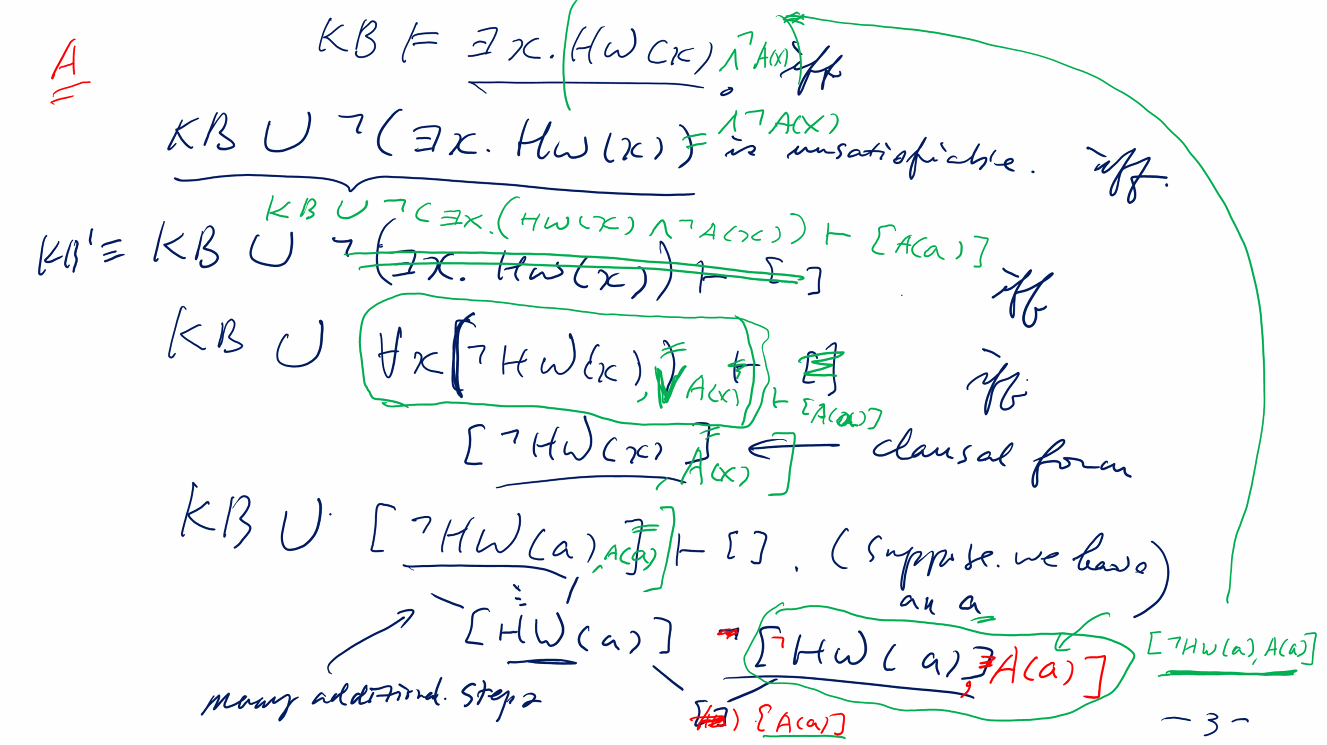 A
KB ⊨ ∃x. (HW(x) ∧ ¬A(x)) iff
KB ∪ ¬(∃x. HW(x)) ∧ ¬A(x) is unsatisfiable. iff.
KB ∪ ¬(∃x. (HW(x) ∧ ¬A(x))) ⊢ [A(a)]
KB' ≡ KB ∪ ¬(∃x. HW(x)) ⊢ [ ] iff
KB ∪ ∀x[¬HW(x) ∨ A(x)] ⊢ [A(a)] iff
[¬HW(x), A(x)] ← clausal form
KB ∪ [¬HW(a), A(a)] ⊢ [ ]. (Suppose we have an a)
[HW(a)] [¬HW(a), A(a)] [¬HW(a), A(a)]
many additional steps [A(a)]
- 3 -